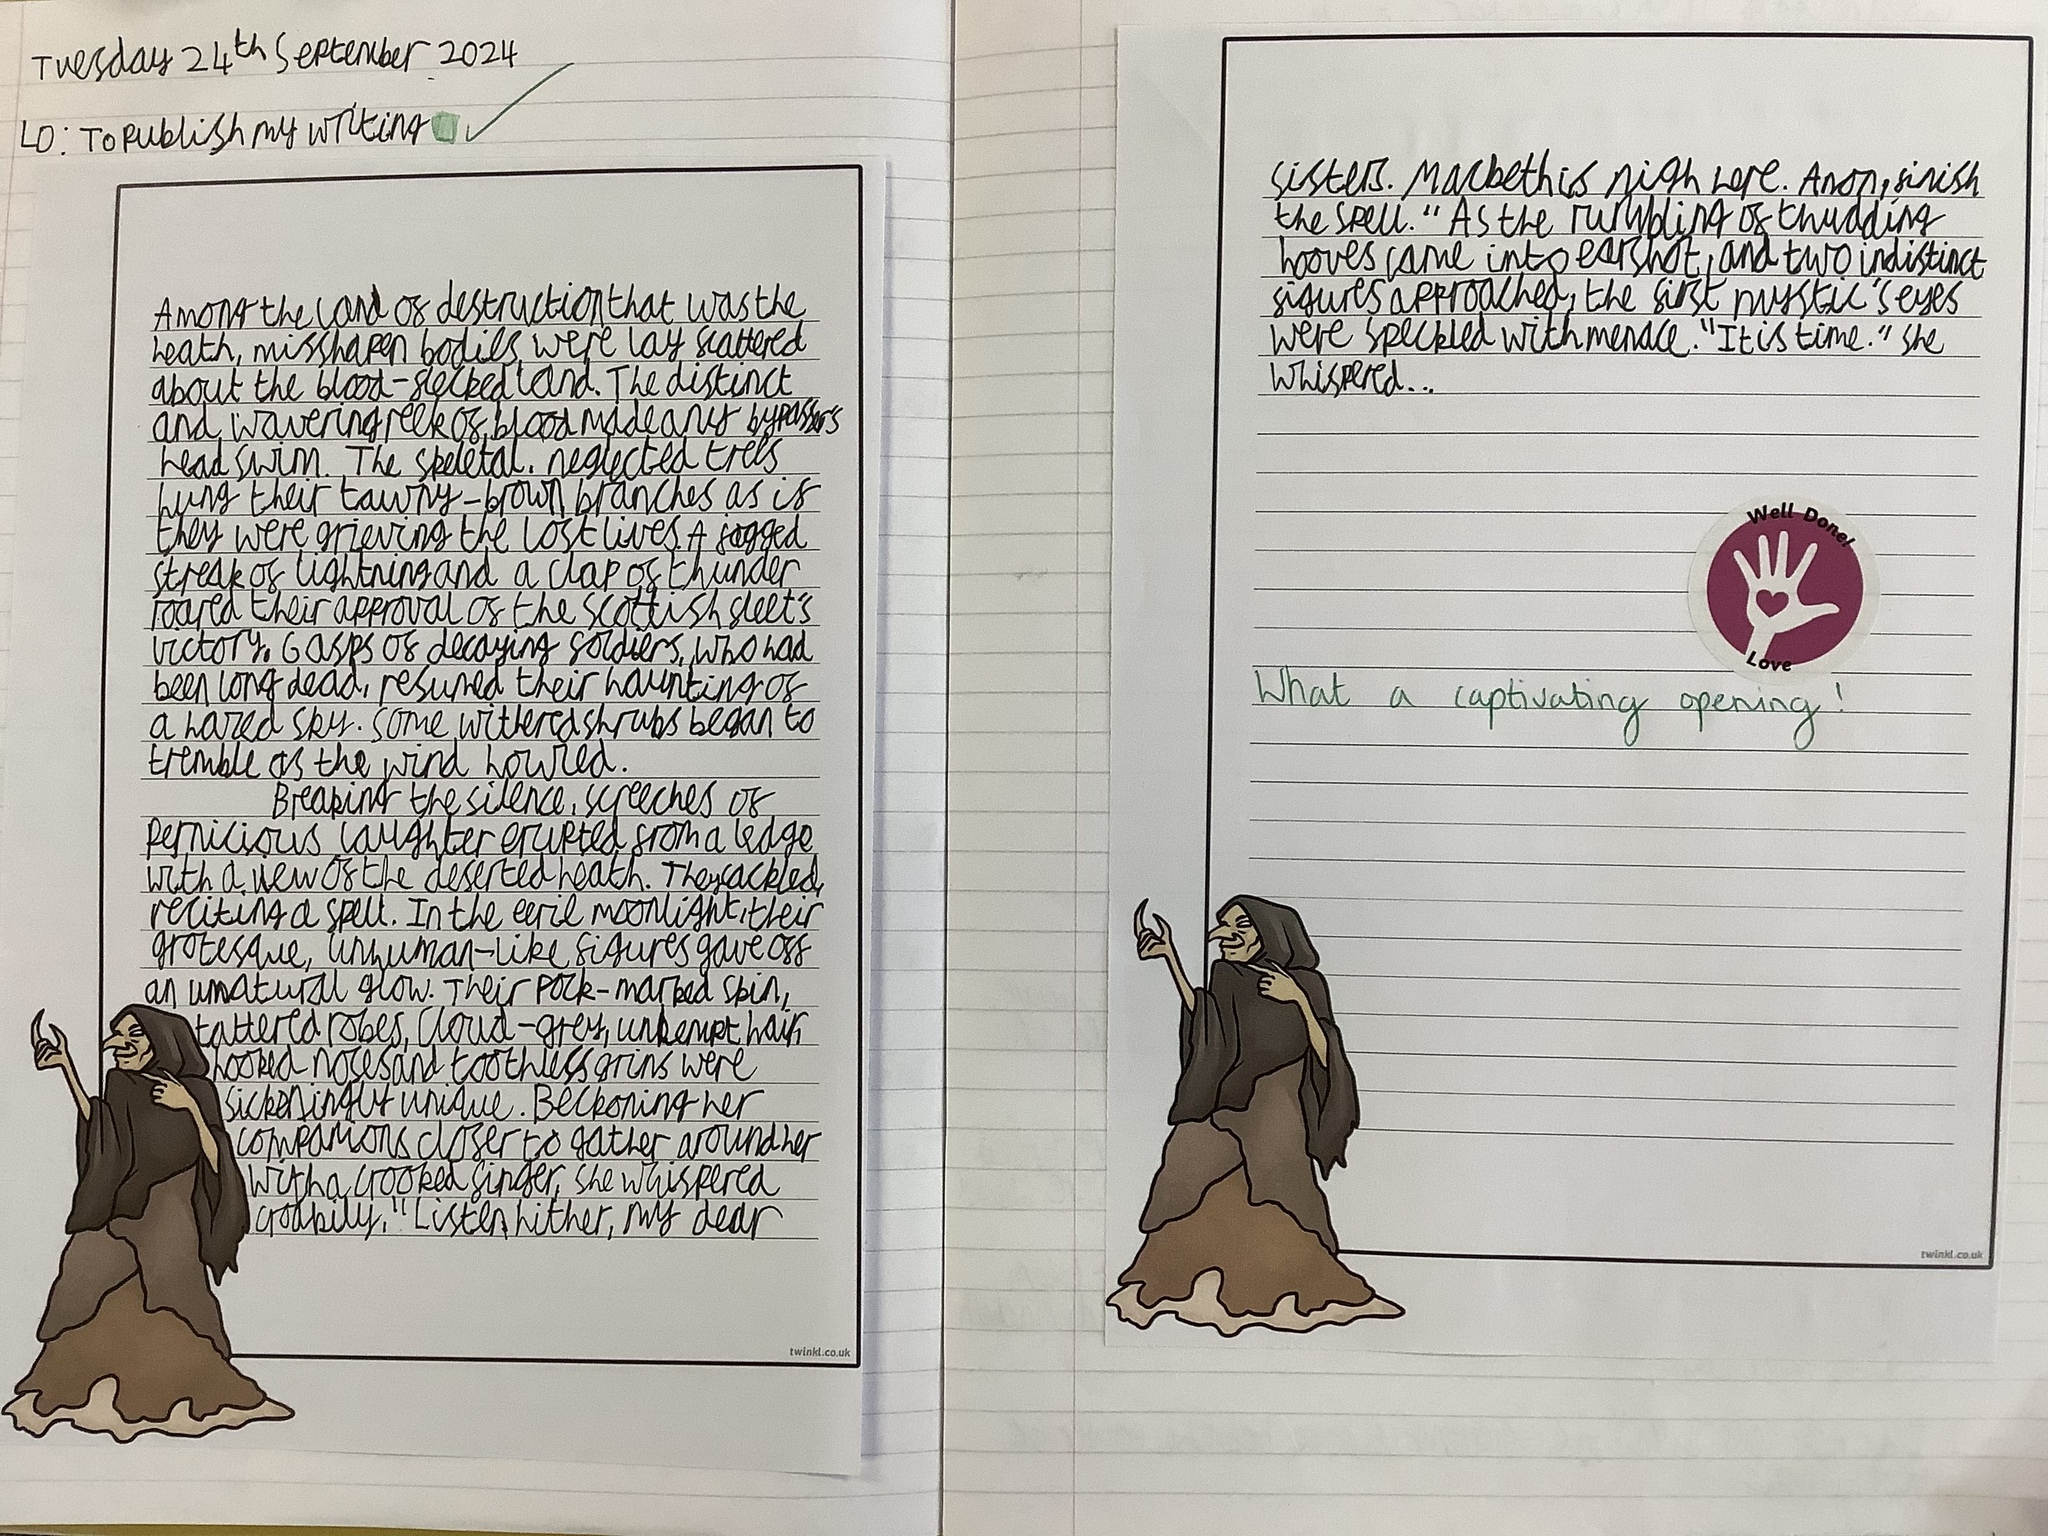 Tuesday 24th September 2024
LO: To publish my writing
Among the land of destruction that was the
heath, misshapen bodies were lay scattered
about the blood-flecked land. The distinct
and wavering reek of blood made any bypasser's
head swim. The skeletal, neglected trees
hung their tawny-brown branches as if
they were grieving the lost lives. A jagged
streak of lightning and a clap of thunder
roared their approval of the scottish fleet's
victory. Gasps of decaying soldiers, who had
been long dead, resumed their haunting of
a hazed sky. Some withered shrubs began to
tremble as the wind howled.
Breaking the silence, screeches of
pernicious laughter erupted from a ledge
with a view of the deserted heath. They cackled,
reciting a spell. In the eerie moonlight, their
grotesque, unhuman-like figures gave off
an unnatural glow. Their pock-marked skin,
tattered robes, cloud-grey, unkempt hair,
hooked noses and toothless grins were
sickeningly unique. Beckoning her
companions closer to gather around her
with a crooked finger, she whispered
croakily, "Listen hither, my dear
twinkl.co.uk
sisters. Macbeth is nigh here. Anon, finish
the spell." As the rumbling of thudding
hooves came into earshot, and two indistinct
figures approached, the first mystic's eyes
were speckled with menace. "It is time." she
whispered...
Well Done!
Love
What a captivating opening!
twinkl.co.uk